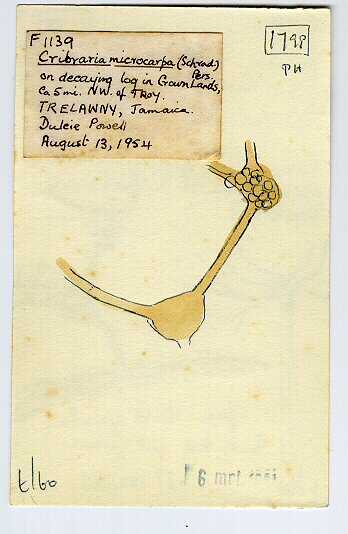 F1139
Cribraria microcarpa (Schrad.)
Pers.
on decaying log in Crown Lands,
Ca 5 mi. NW. of TROY.
TRELAWNY, Jamaica.
Dulcie Powell
August 13, 1954
1798
PH
t/60
6